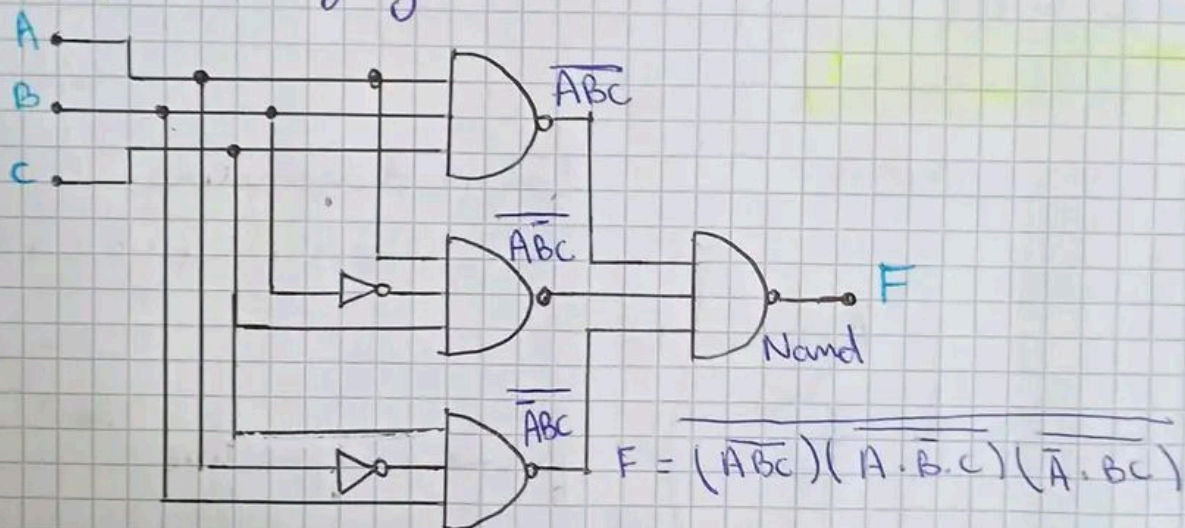 A
B
C
A̅B̅C̅
A̅B̿C̅
A̿B̅C̅
F
Nand
F = \overline{(\overline{ABC})(\overline{A·\overline{B}·C})(\overline{\overline{A}·BC})}